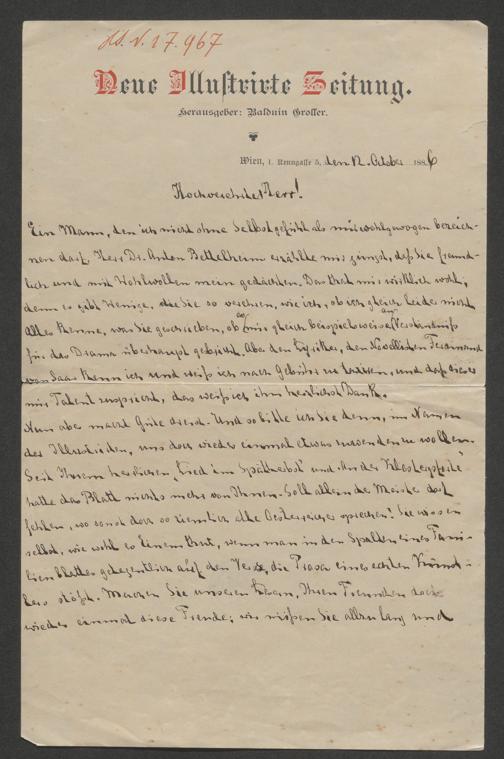 H.I.N. 17.967
Neue Illustrirte Zeitung.
Herausgeber: Balduin Groller.
Wien, I. Renngasse 5, den 12. October 1886
Hochverehrter Herr!
Ein Mann, den ich nicht ohne Selbstgefühl als mir wohlgewogen bezeich-
nen darf, Herr Dr. Anton Bettelheim erzählte mir jüngst, daß Sie freund-
lich und mit Wohlwollen mein gedachten. Das that mir wirklich wohl,
denn es gibt Wenige, die Sie so verehren, wie ich, ob ich gleich leider nicht
Alles kenne, was Sie geschrieben, ob es mir gleich beispielsweise an Verständniß
für das Drama überhaupt gebricht. Aber den Lyriker, den Novellisten Ferdinand
von Saar kenn ich und weiß ich nach Gebühr zu und daß dieser
mir Talent zuspricht, das weiß ich ihm herzlichst Dank.
Nun aber macht Güte dreist. Und so bitte ich Sie denn, im Namen
der Illustrirten, uns doch wieder einmal etwas zuwenden zu wollen.
Seit Ihrem herrlichen "Lied im Spätherbst" und der Klosterpforte"
hatte das Blatt nichts mehr von Ihnen. Soll allein der Meister dort
fehlen, wo sonst doch so ziemlich alle Oesterreicher sprechen? Sie wissen
selbst, wie wohl es Einem thut, wenn man in den Spalten eines Fami-
lienblattes gelegentlich auf den Vers, die Prosa eines echten Künst-
lers stößt. Machen Sie unseren Lesern, Ihren Freunden doch
wieder einmal diese Freude; wir mißen Sie allzu lang und